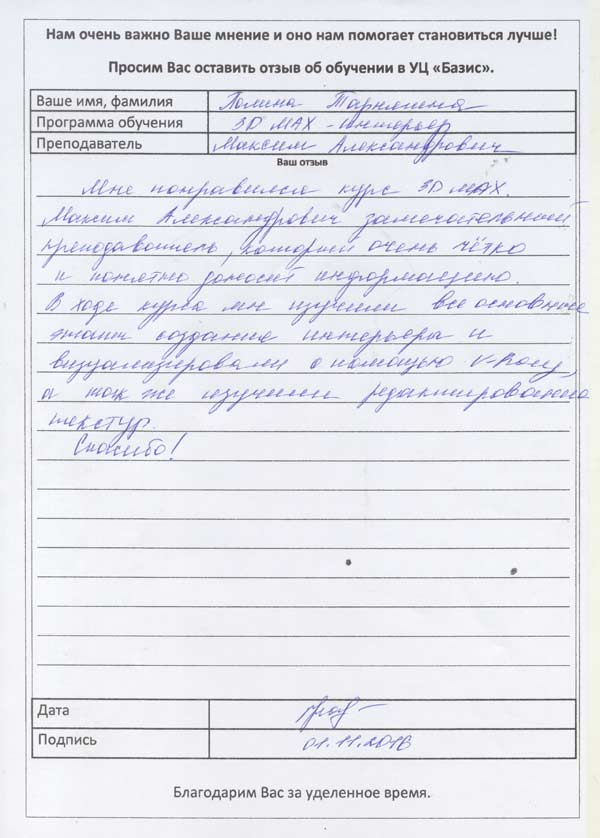 Нам очень важно Ваше мнение и оно нам помогает становиться лучше!
Просим Вас оставить отзыв об обучении в УЦ «Базис».
Ваше имя, фамилия Полина
Программа обучения 3D MAX - интерьер
Преподаватель Максим Александрович
Ваш отзыв
Мне понравился курс 3D MAX.
Максим Александрович замечательный
преподаватель, который очень чётко
и понятно доносит информацию.
В ходе курса мы изучили все основные
этапы создания интерьера и
визуализировали с помощью V-Ray,
а так же изучили редактирование
текстур.
Спасибо!
Дата
Подпись 01.11.2016
Благодарим Вас за уделенное время.